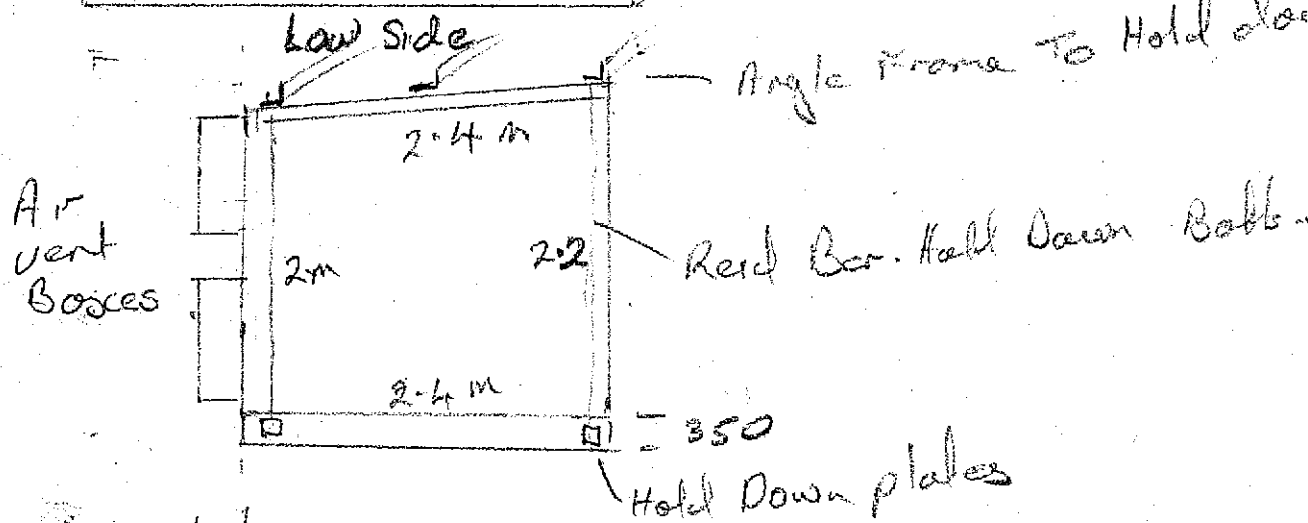 Low Side
Angle Frame To Hold
2.4 m
Air
vent
Boxces
2m
2.2
Reid Bar. Hold Down Bolts..
2.4 m
350
Hold Down plates